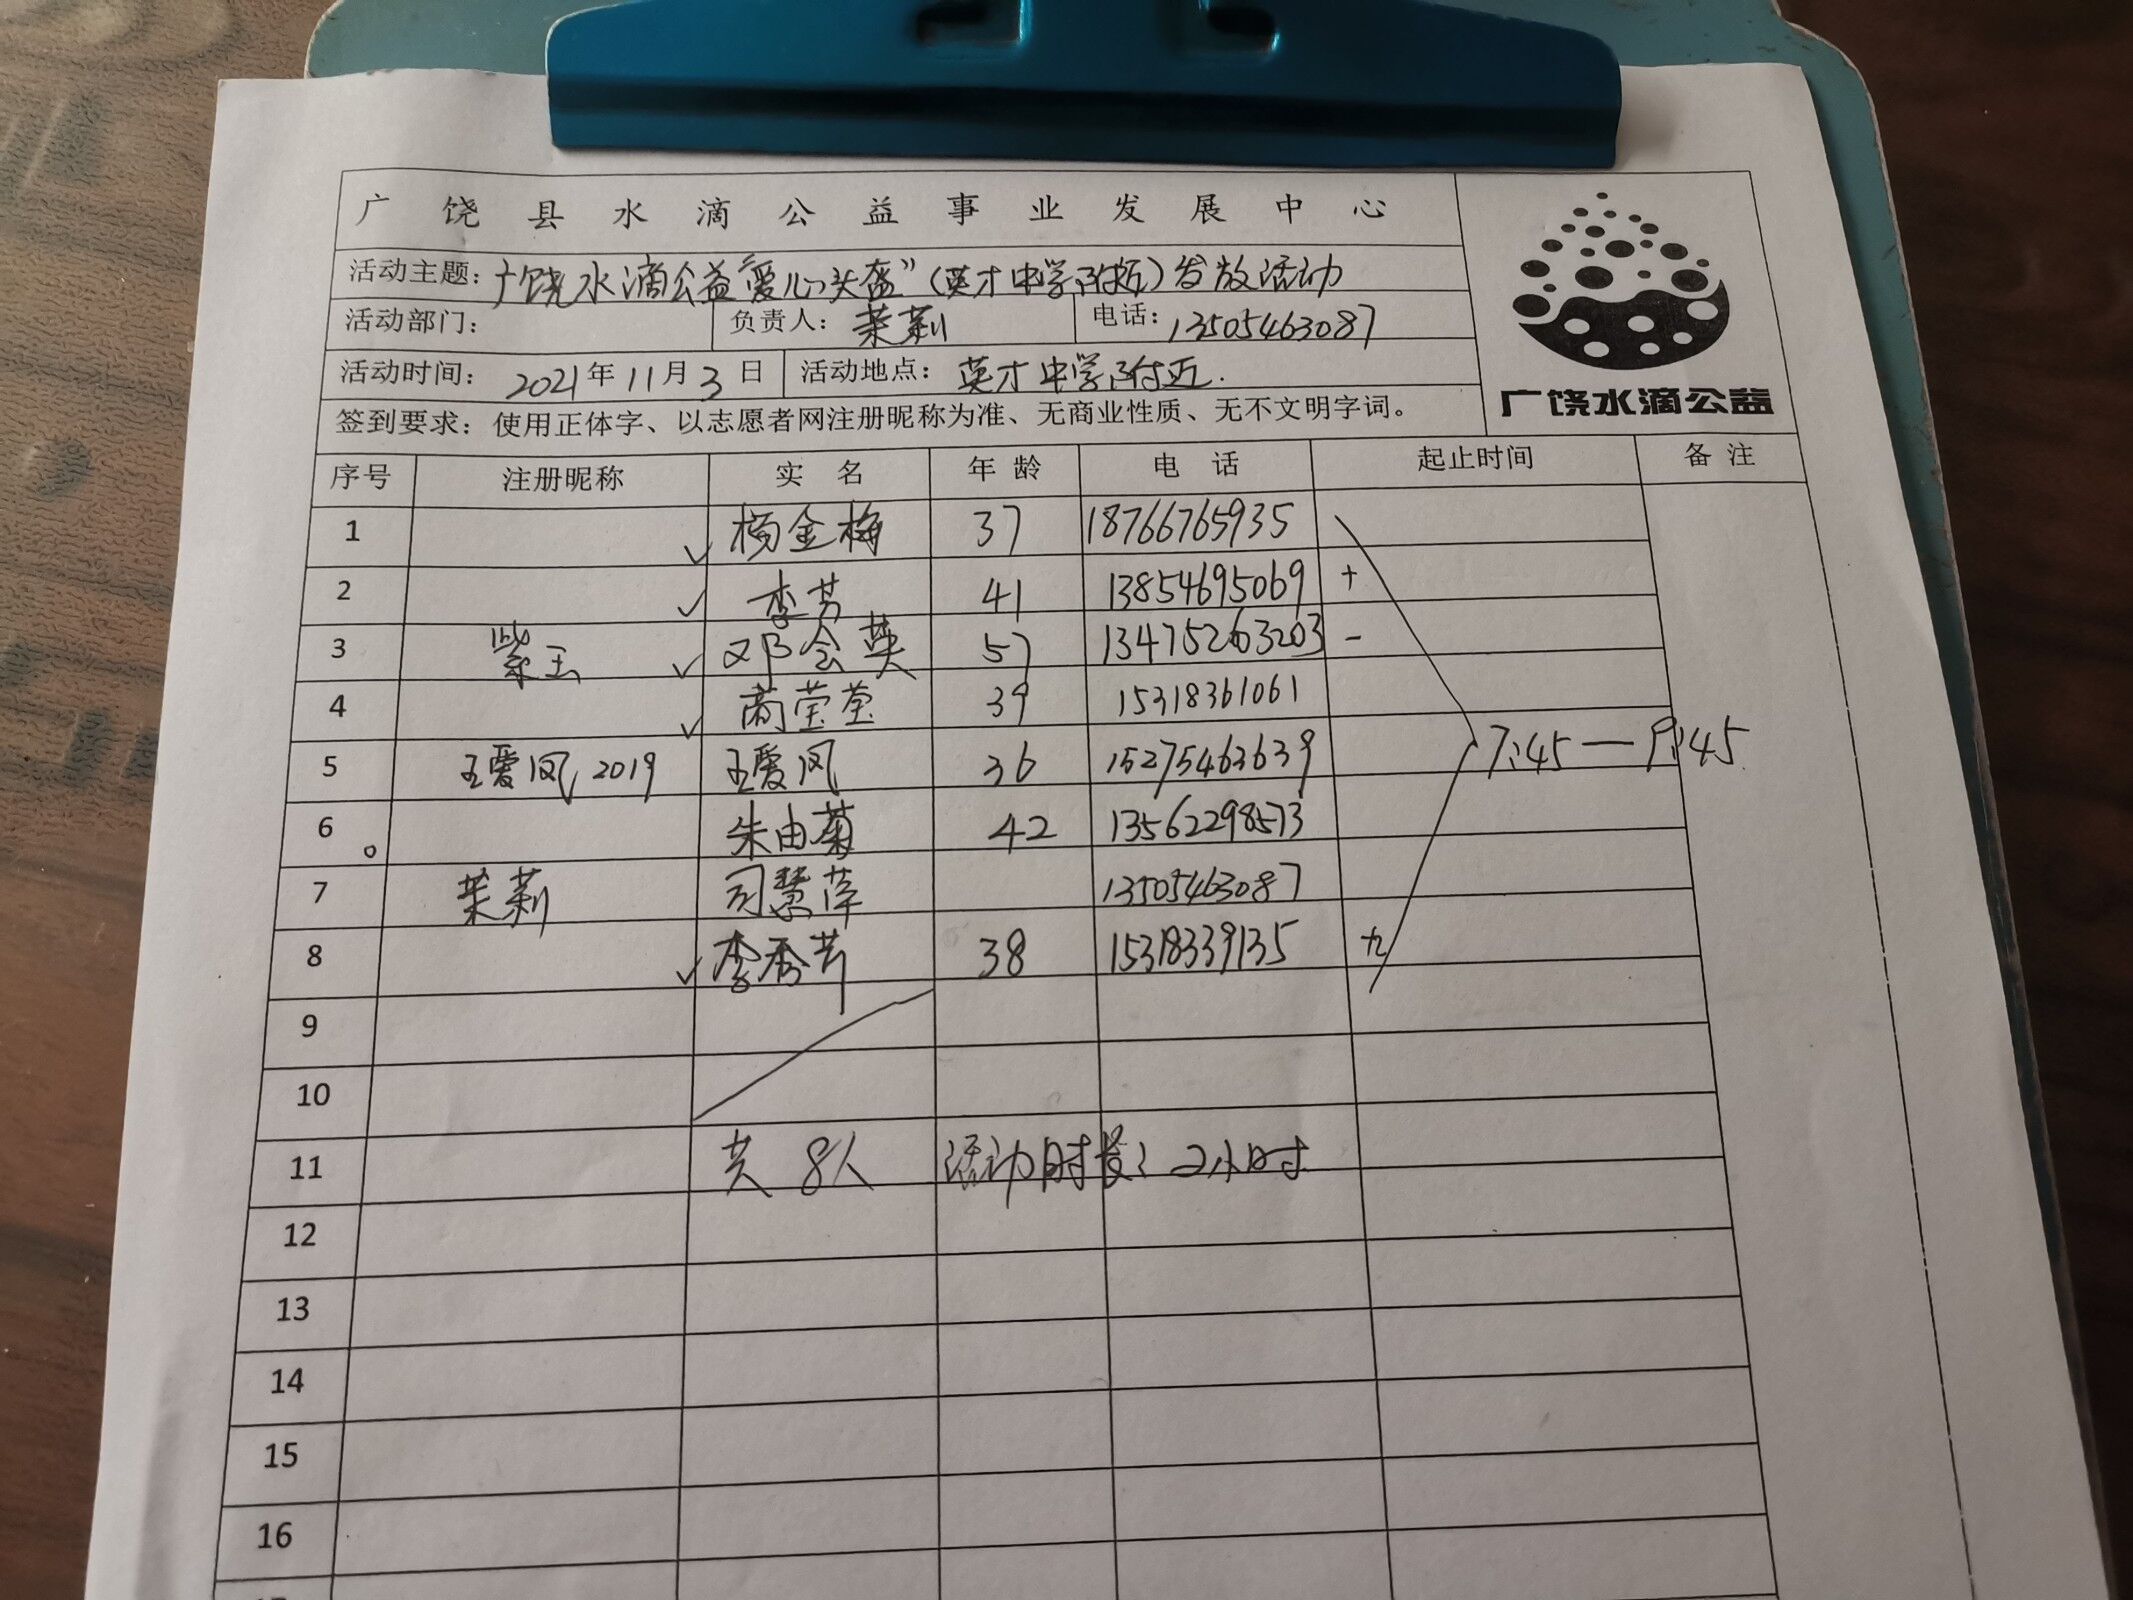 广饶县水滴公益事业发展中心
活动主题：广饶水滴公益“爱心头盔”（英才中学附近）发放活动
活动部门： 负责人：茉莉 电话：13505463087
活动时间：2021年11月3日 活动地点：英才中学附近.
广饶水滴公益
签到要求：使用正体字、以志愿者网注册昵称为准、无商业性质、无不文明字词。
序号 注册昵称 实名 年龄 电话 起止时间 备注
1 ✓ 杨金梅 37 18766765935
2 ✓ 李芳 41 13854695069 +
3 紫玉 ✓ 邓会英 57 13475263203 -
4 ✓ 商莹莹 39 15318361061
5 王爱凤2019 王爱凤 36 15275463639 7:45—9:45
6 朱由菊 42 13562298573
7 茉莉 司慧萍 13505463087
8 ✓ 李秀芹 38 15318339135 九
9
10
11 共8人 活动时长：2小时
12
13
14
15
16